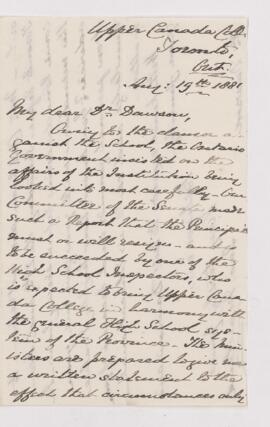 Upper Canada Coll.
Toronto,
Ont.
Aug: 19th 1881
My dear Dr Dawson,
Owing to the clamor a-
gainst the School, the Ontario
Government insisted on the
affairs of the Institution being
looked into most carefully. Our
Committee of the Senate made
such a Report that the Principal
must or will resign - and is
to be succeeded by one of the
High School Inspectors, who
is expected to bring Upper Cana-
da College in harmony with
the general High School sys-
tem of the Province. The Min-
isters are prepared to give me
a written statement to the
effect that circumstances only